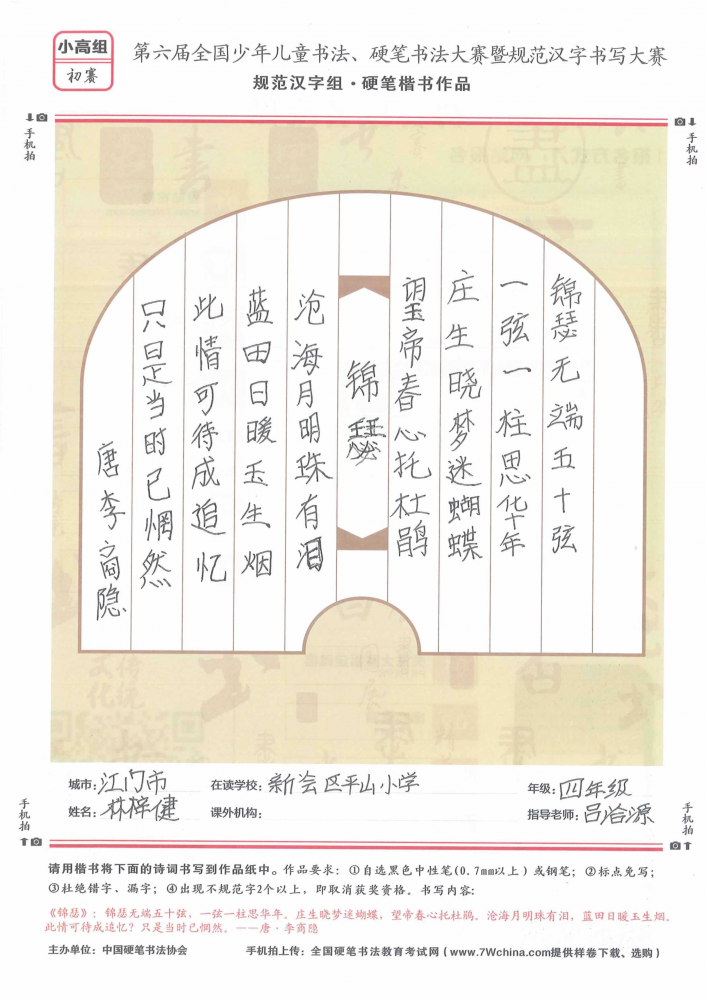 小高组
初赛
第六届全国少年儿童书法、硬笔书法大赛暨规范汉字书写大赛
规范汉字组·硬笔楷书作品
手机拍
手机拍
锦瑟无端五十弦
一弦一柱思华年
庄生晓梦迷蝴蝶
望帝春心托杜鹃
锦瑟
沧海月明珠有泪
蓝田日暖玉生烟
此情可待成追忆
只是当时已惘然
唐李商隐
城市：江门市 在读学校：新会区平山小学 年级：四年级
姓名：林梓健 课外机构： 指导老师：吕洽源
手机拍
手机拍
请用楷书将下面的诗词书写到作品纸中。作品要求：①自选黑色中性笔(0.7mm以上）或钢笔；②标点免写；
③杜绝错字、漏字；④出现不规范字2个以上，即取消获奖资格。书写内容：
《锦瑟》：锦瑟无端五十弦，一弦一柱思华年。庄生晓梦迷蝴蝶，望帝春心托杜鹃。沧海月明珠有泪，蓝田日暖玉生烟。
此情可待成追忆？只是当时已惘然。——唐·李商隐
主办单位：中国硬笔书法协会 手机拍上传：全国硬笔书法教育考试网（www.7Wchina.com提供样卷下载、选购）